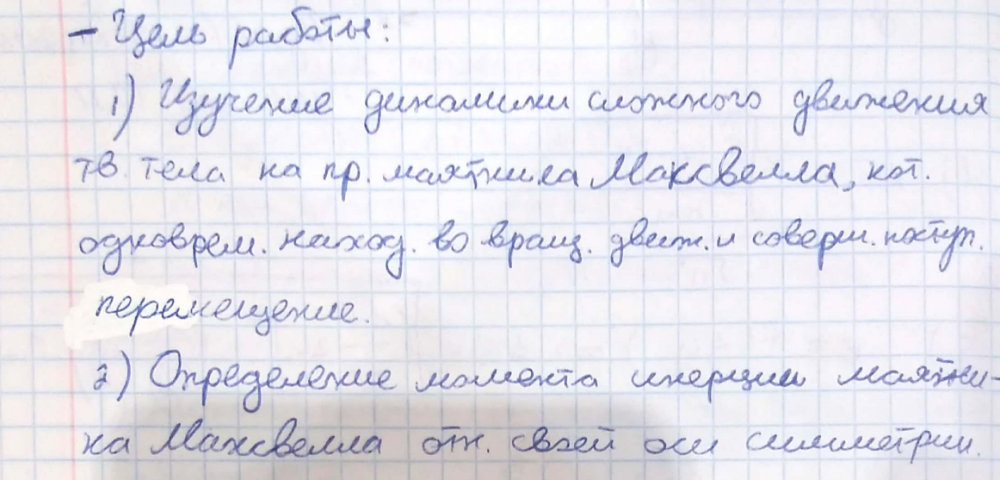 - Цель работы:
1) Изучение динамики сложного движения
тв. тела на пр. маятника Максвелла, кот.
одноврем. наход. во вращ. движ. и соверш. поступ.
перемещение.
2) Определение момента инерции маятни-
ка Максвелла отн. своей оси симметрии.